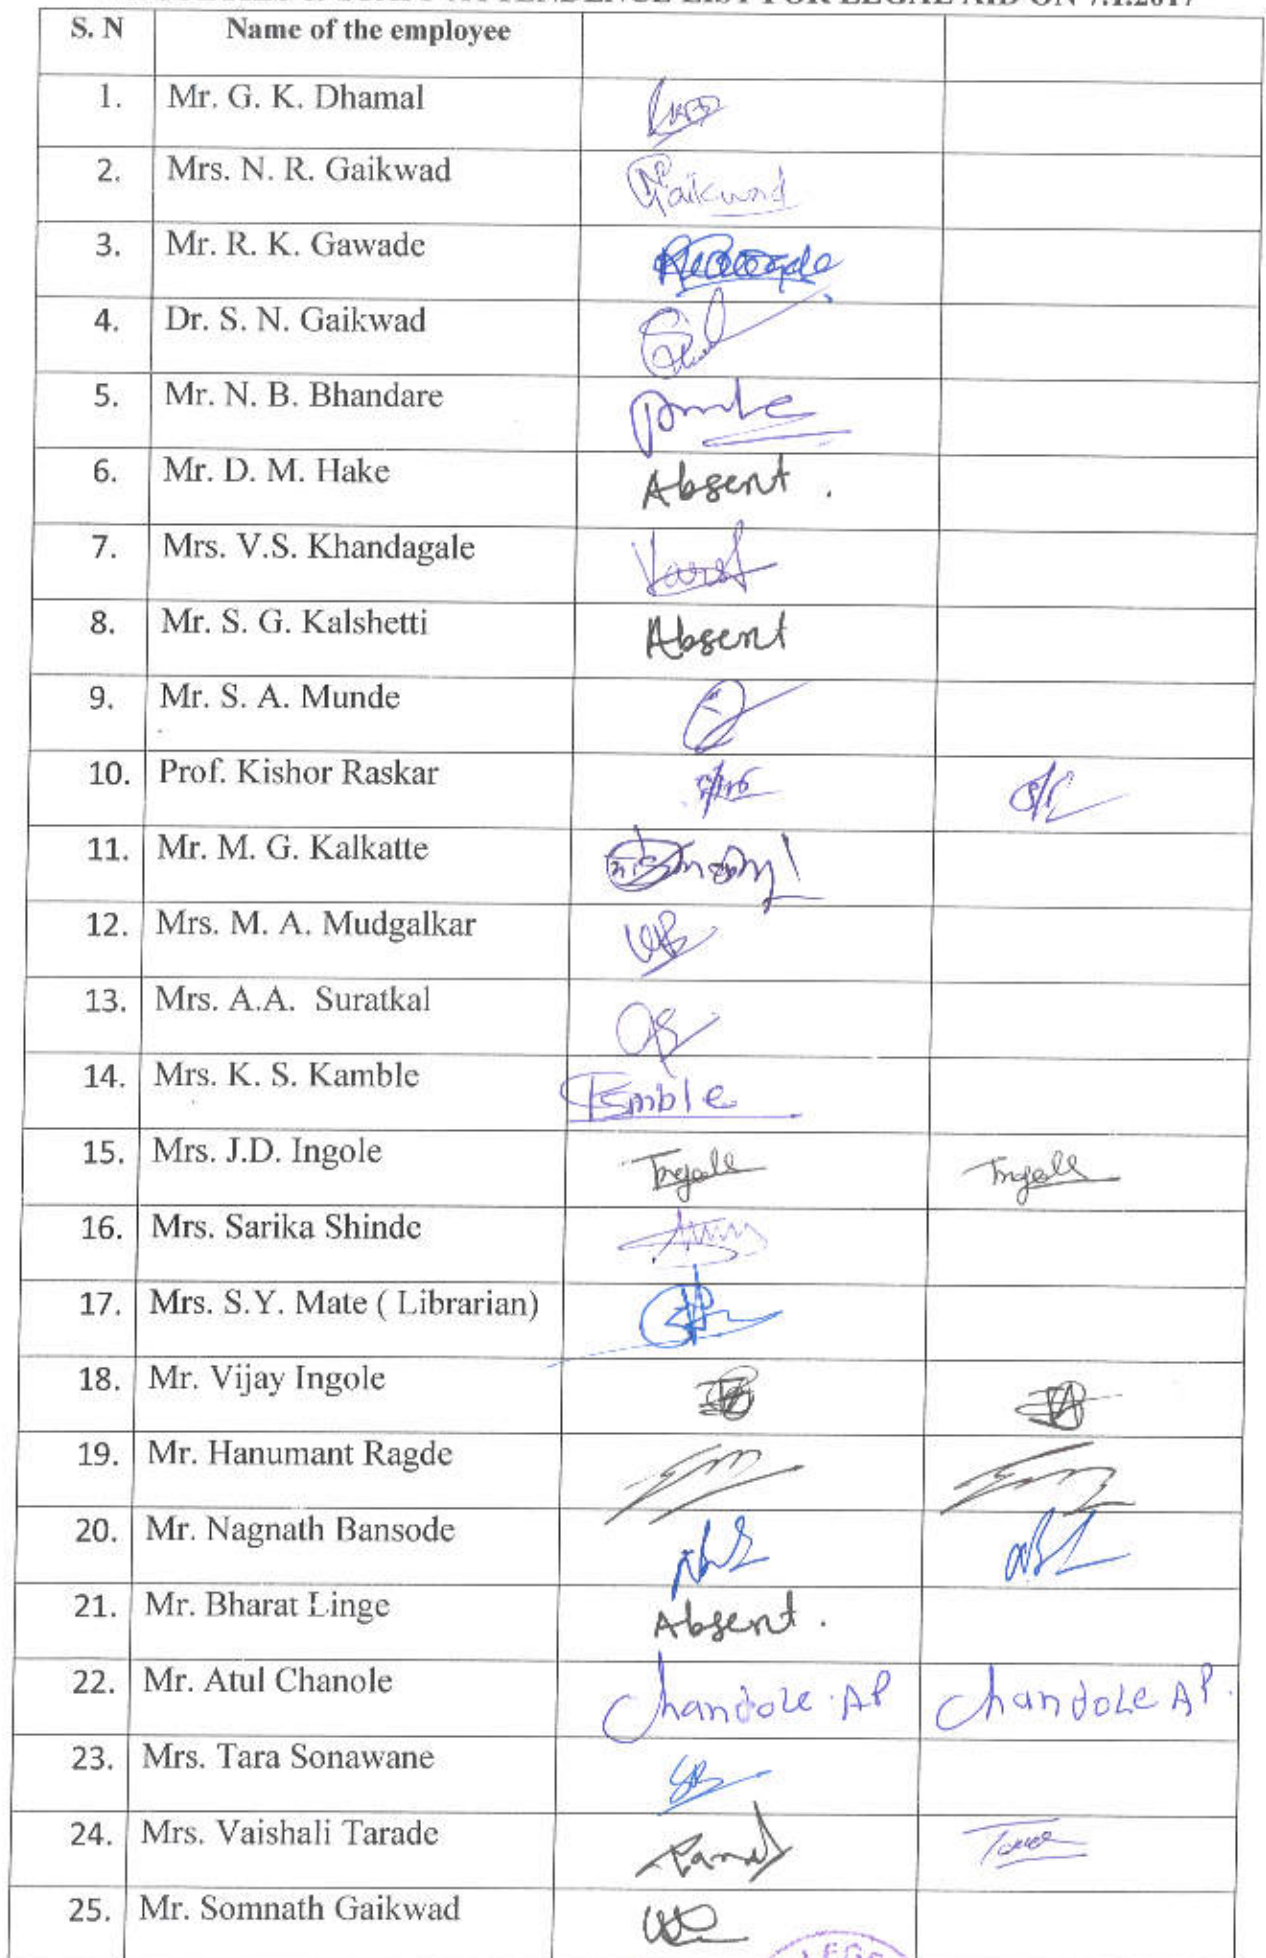 ATTENDENCE LIST FOR LEGAL AID ON 7.1.2017
S. N Name of the employee
1. Mr. G. K. Dhamal
2. Mrs. N. R. Gaikwad Gaikwad
3. Mr. R. K. Gawade
4. Dr. S. N. Gaikwad
5. Mr. N. B. Bhandare
6. Mr. D. M. Hake Absent.
7. Mrs. V.S. Khandagale
8. Mr. S. G. Kalshetti Absent
9. Mr. S. A. Munde
10. Prof. Kishor Raskar
11. Mr. M. G. Kalkatte
12. Mrs. M. A. Mudgalkar
13. Mrs. A.A. Suratkal
14. Mrs. K. S. Kamble
15. Mrs. J.D. Ingole Ingole Ingole
16. Mrs. Sarika Shinde
17. Mrs. S.Y. Mate ( Librarian)
18. Mr. Vijay Ingole
19. Mr. Hanumant Ragde
20. Mr. Nagnath Bansode
21. Mr. Bharat Linge Absent.
22. Mr. Atul Chanole Chandole AP Chandole AP.
23. Mrs. Tara Sonawane
24. Mrs. Vaishali Tarade
25. Mr. Somnath Gaikwad